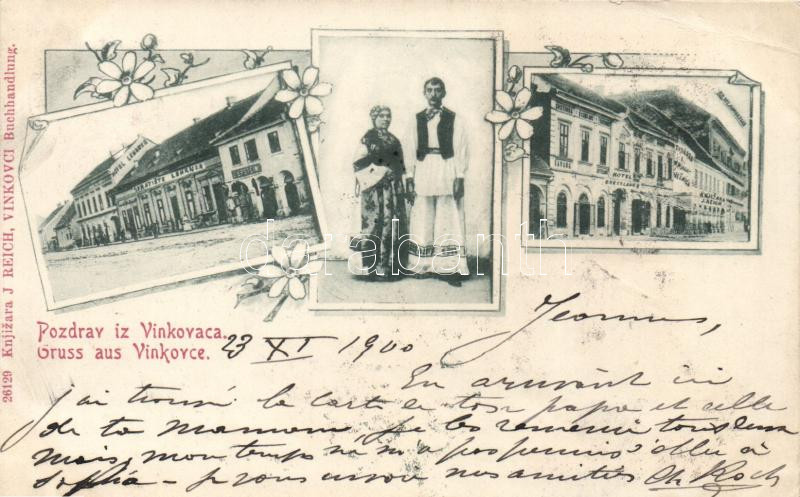 26129 Knjižara J REICH, VINKOVCI Buchhandlung.
HOTEL
HOTEL
Pozdrav iz Vinkovaca.
Gruss aus Vinkovce.
23 XI 1900
En arrivant ici
j'ai trouvé la carte de ton papa et celle
de ta maman je les remercie tous deux
mais mon temps ne m'a pas permis d'aller à
Sophia - je vous envoie mes amitiés Ch Koch
darabanth